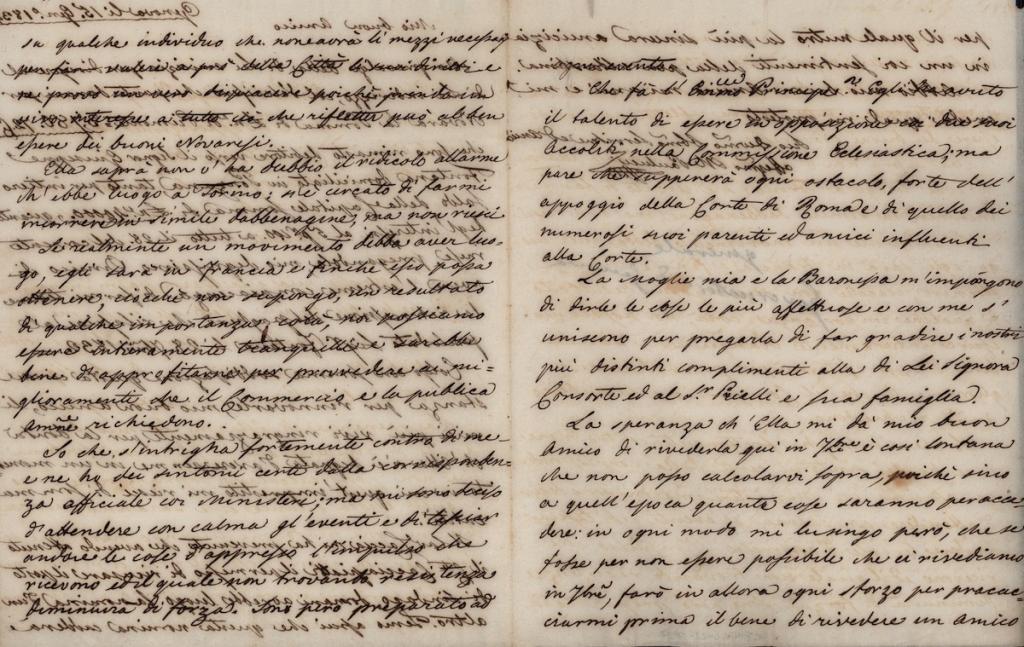 su qualche individuo che non avrà li mezzi necessarj
per far valere a prò della Città li suoi diritti e
ne provo un vero dispiacere poiche prendo i di
vivo interesse a tutto ciò che riflette può al ben
essere dei buoni Novaresi.
Ella saprà non v'ha dubbio il ridicolo allarme
ch'ebbe luogo a Torino; si cercato di farmi
incorrere in simile dabbenagine, ma non riescì
Se realmente un movimento debba aver luo-
go, egli sarà in Francia e finche esso possa
ottenere, ciocchè non suppongo, un resultato
di qualche importanza colà, noi possiamo
essere interamente tranquilli e sarebbe
bene d'approfittarne per provvedere ai mi-
glioramenti che il Commercio e la publica
amñe richiedono.
So che s'intrigha fortemente contro di me
e ne ho dei sintomi certi dalla corrisponden-
za officiale coi Ministeri; ma mi sono deciso
d'attendere con calma gl'eventi e di lasciar
andare le cose d'appresso l'impulso che
ricevono ed il quale non trovando resistenza
diminuirà di forza. Sono però preparato ad
Che fà l' Principe Egli ha avuto
il talento di essere in opposizione co' due suoi
Accoliti nella Commissione Eclesiastica; ma
pare che supererà ogni ostacolo, forte dell'
appoggio della Corte di Roma e di quello dei
numerosi suoi parenti ed amici influenti
alla Corte.
La Moglie mia e la Baronessa m'impongono
di dirle le cose le più affettuose e con me s'
unisono per pregarla di far gradire i nostri
più distinti complimenti alla di Lei Signora
Consorte ed al Sr. e sua famiglia.
La speranza ch'Ella mi dà mio buon
amico di rivederla qui in 7bre è così lontana
che non posso calcolarvi sopra, poichè sino
a quell'epoca quante cose saranno per acca-
dere: in ogni modo mi lusingo però, che se
fosse per non essere possibile che ci rivediamo
in 7bre, farò in allora ogni sforzo per procac-
ciarmi prima il bene di rivedere un amico